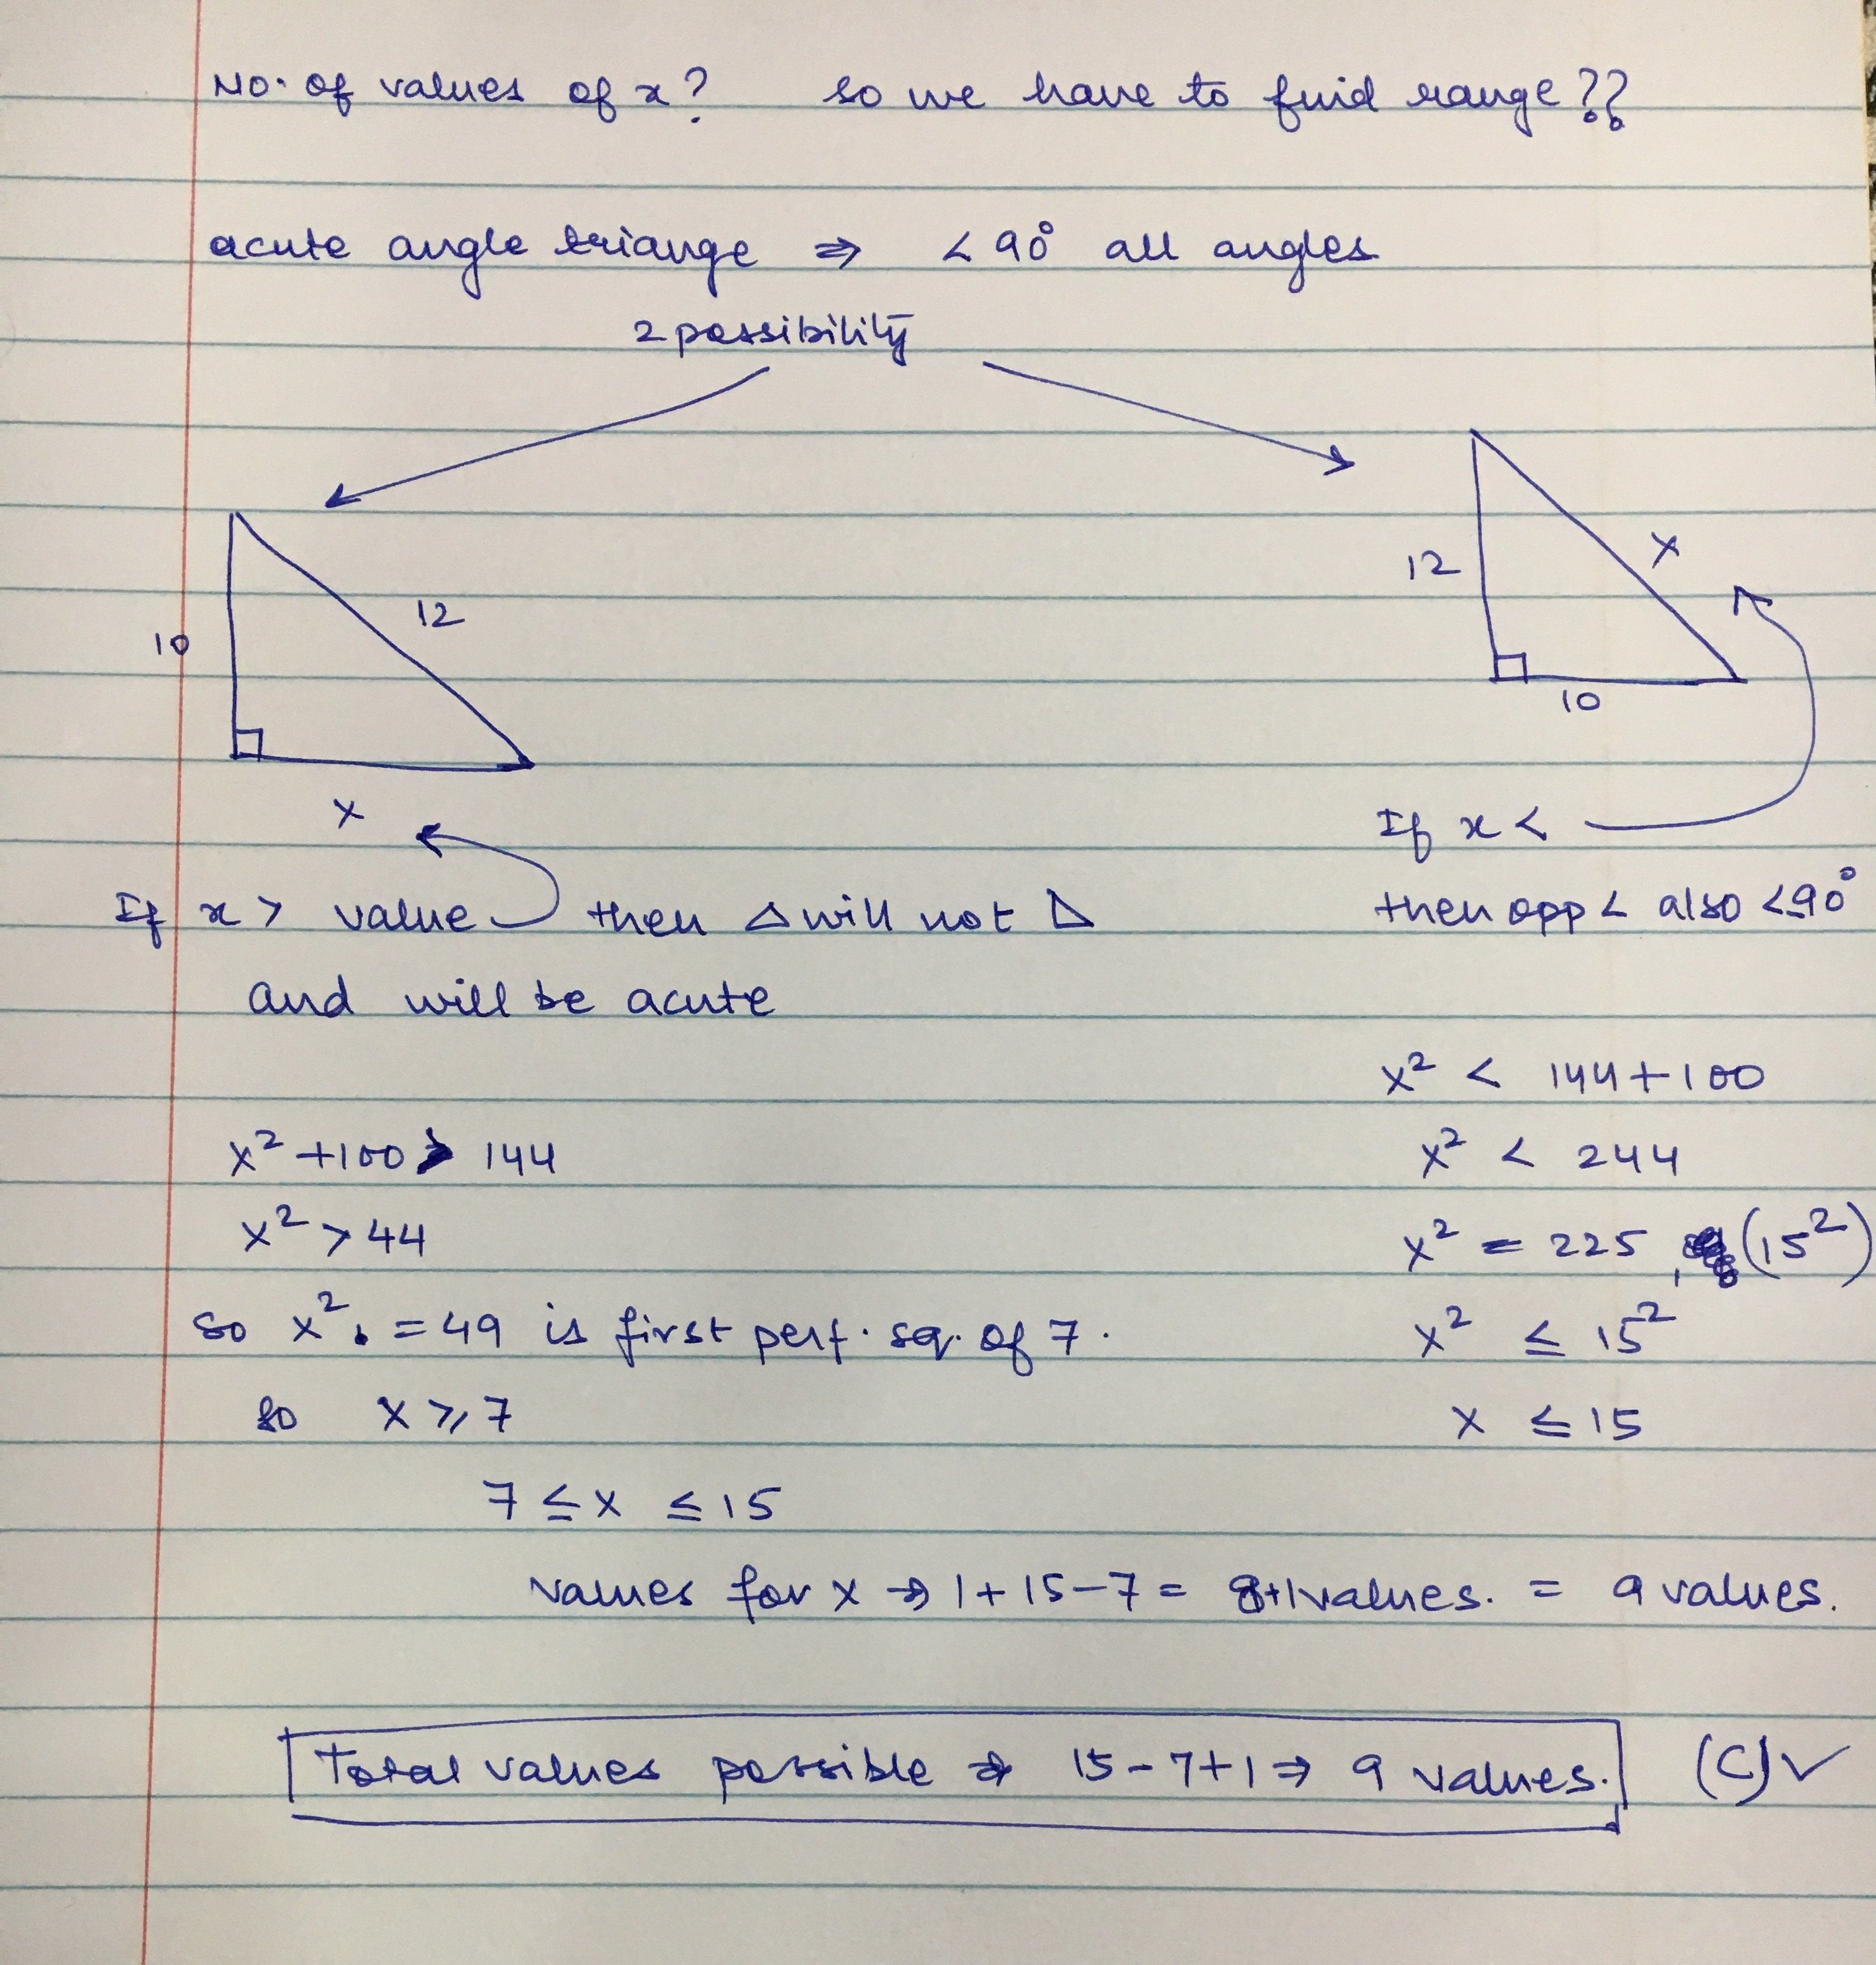 No. of values of x? so we have to find range??
acute angle triange ⇒ < 90° all angles
2 possibility
10
12
x
12
x
10
If x > value then △ will not ◺
and will be acute
x² + 100 > 144
x² > 44
so x² = 49 is first perf. sq. of 7.
so x ≥ 7
If x <
then opp ∠ also < 90°
x² < 144 + 100
x² < 244
x² = 225, (15²)
x² ≤ 15²
x ≤ 15
7 ≤ x ≤ 15
values for x → 1 + 15 - 7 = 8+1 values. = 9 values.
Total values possible ⇒ 15 - 7 + 1 ⇒ 9 values. (C) ✓